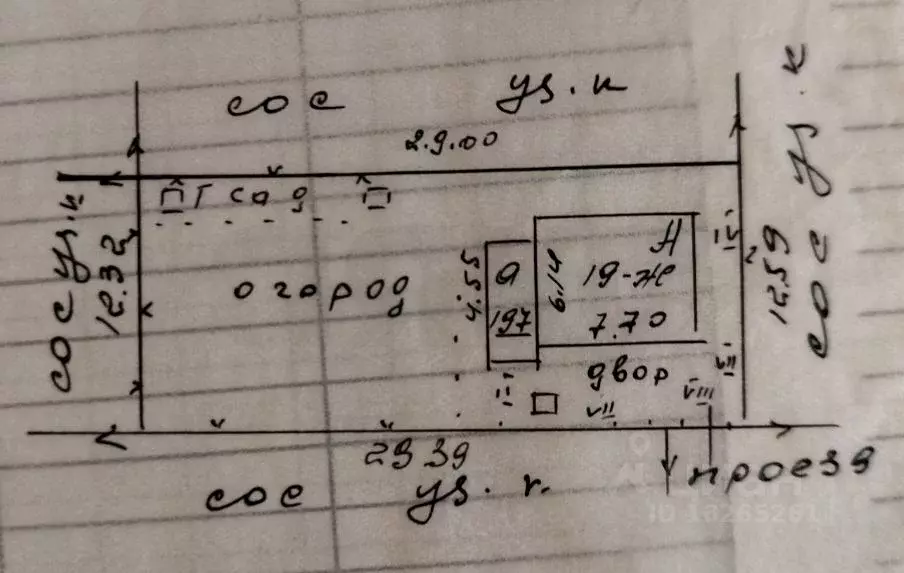 сос уз. к
29.00
Г сад
сос уз. к
12.32
огород
4.55
а
197
6.14
А
19-ж
7.70
двор
VII
VIII
12.59
сос уз. к
29 39
проезд
сос уз. к.